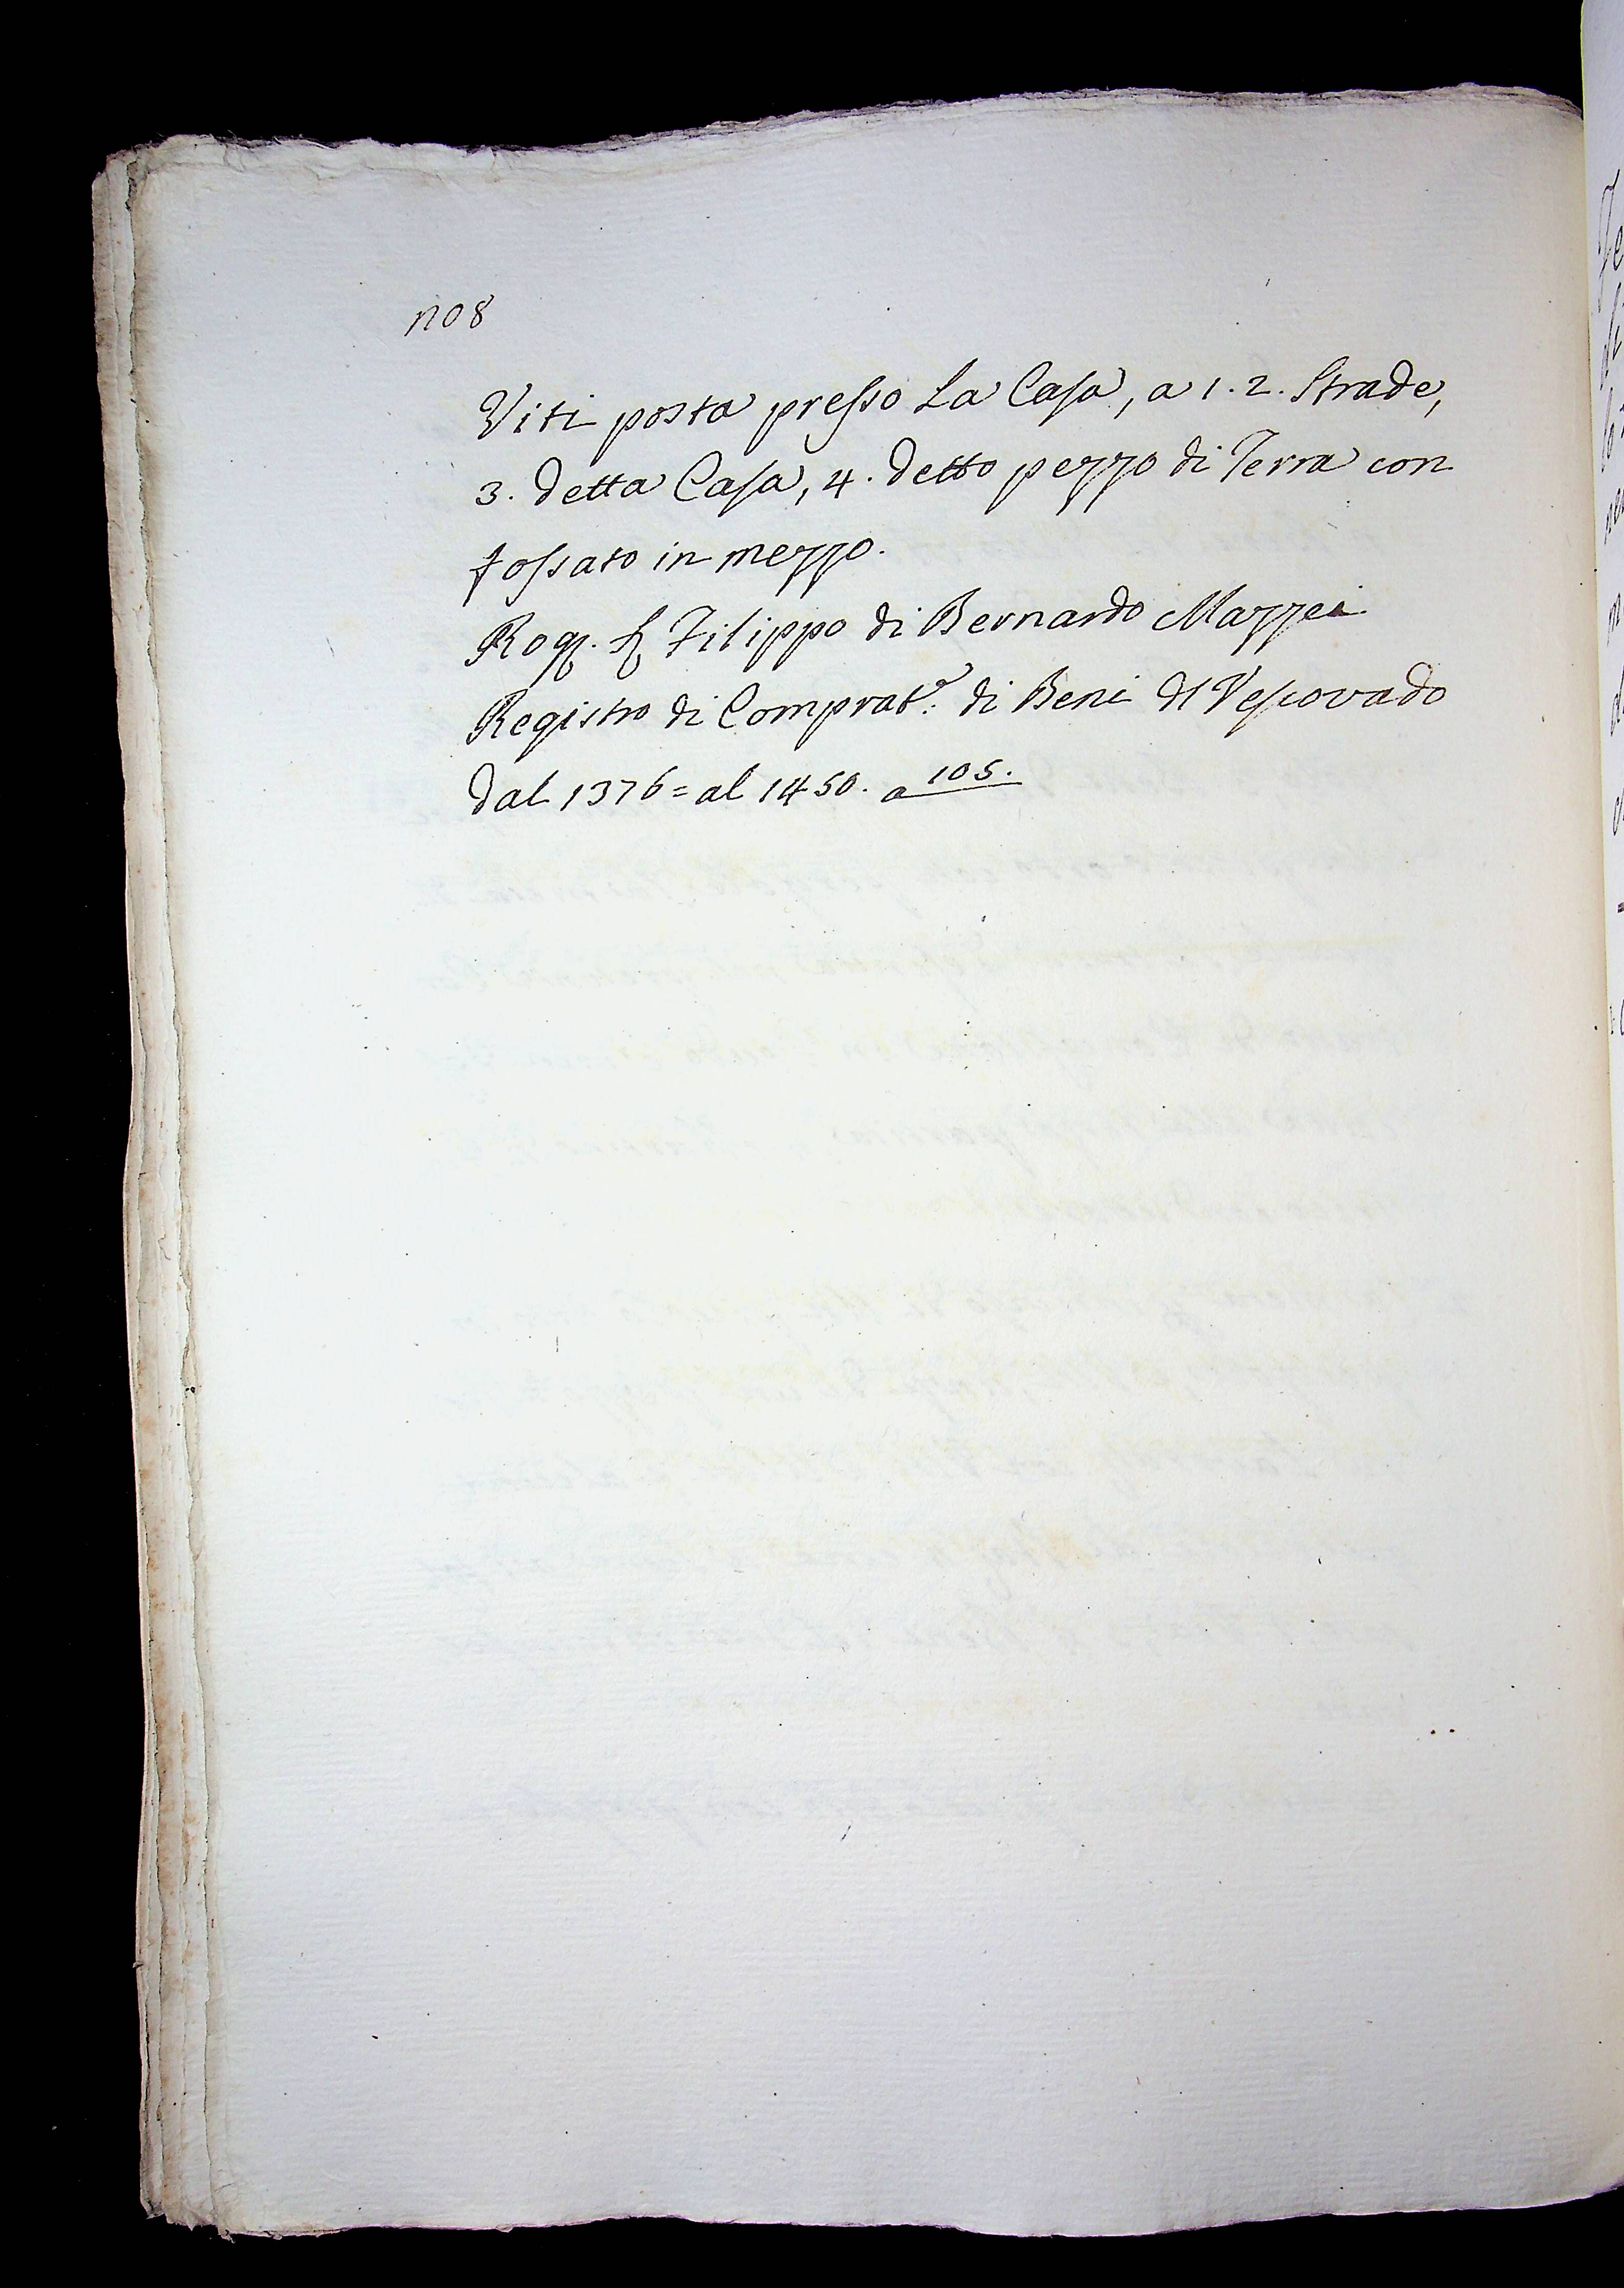 1108
Viti posta presso La Casa, a 1. 2. Strade,
3. detta Casa, 4. detto pezzo di Terra con
fossato in mezzo.
Rog. Filippo di Bernardo Mazzei
Registro di Comprat.e di Beni dl Vescovado
dal 1376 = al 1450. a 105.